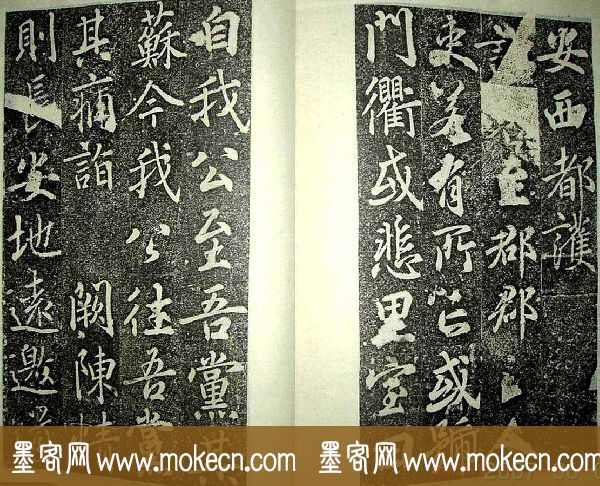 安西都護
至郡郡
吏若有所亡或
門衢或悲里室
自我公至吾黨其
蘇今我公往吾黨
其痛詣 闕陳情
則長安地遠邀
墨客网 www.mokecn.com 墨客网 www.mokecn.com